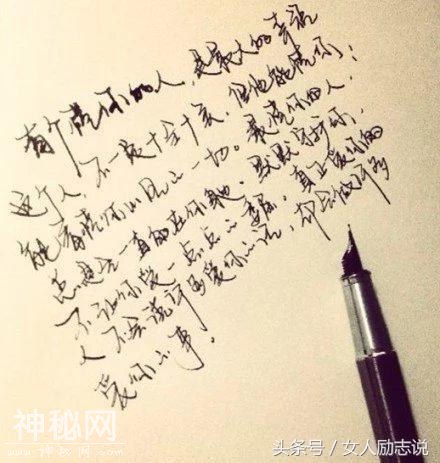 有个懂你的人，是最大的幸福
这个人，不一定十全十美，但他能读懂你；
能看懂你的一切。最懂你的人，
总是会一直的在你身边，默默守护你，
不让你受一点点的委屈。真正爱你的
人不会说许多爱你的话，却会做许多
爱你的事。
神秘网
头条号／女人励志说